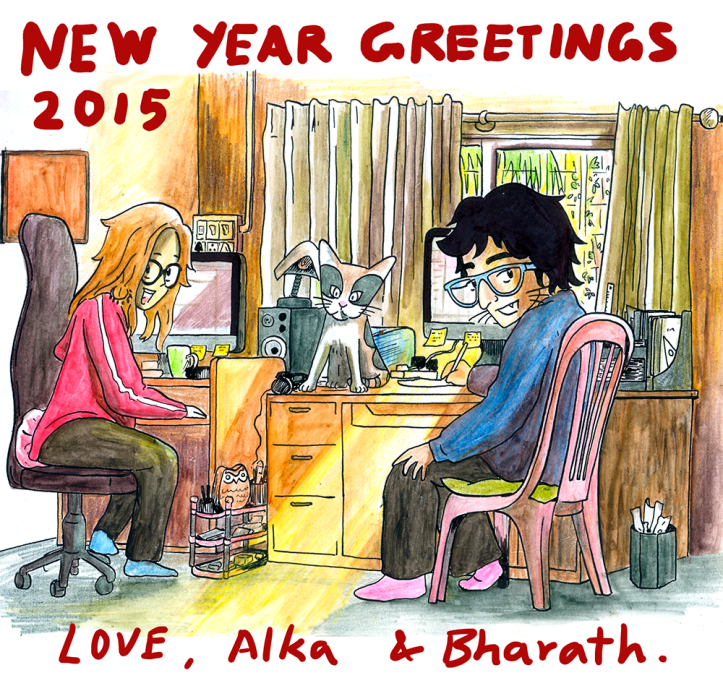 NEW YEAR GREETINGS
2015
LOVE, Alka & Bharath.